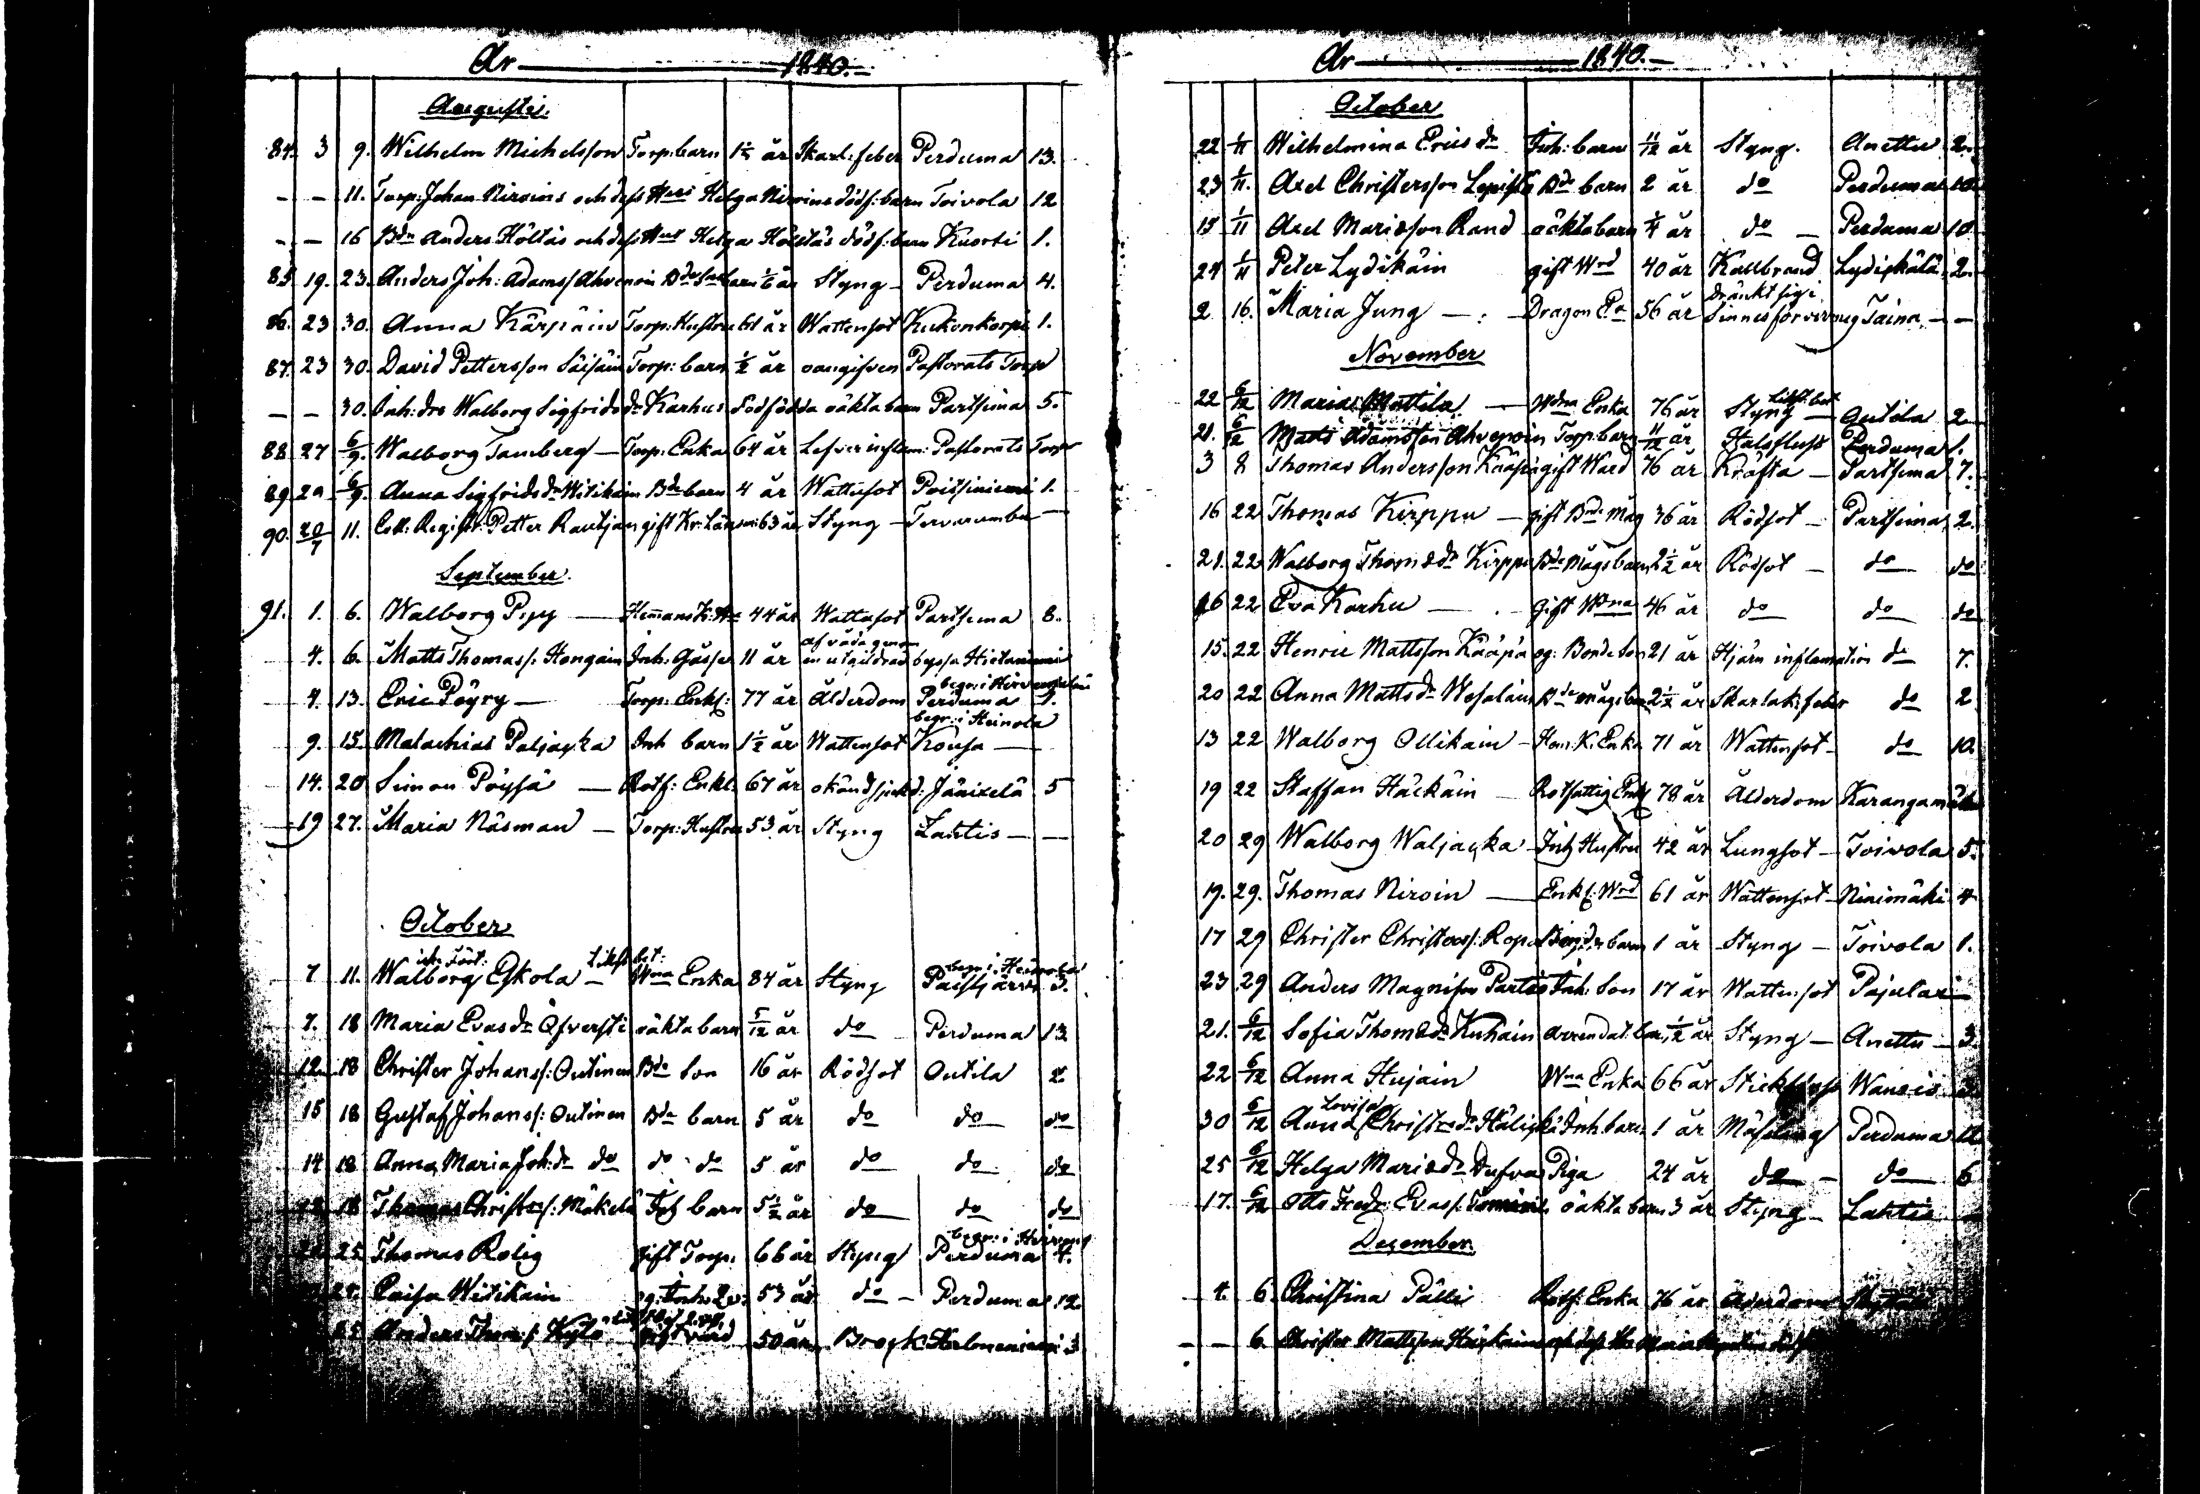 År 1840.
Augusti.
84. 3 9. Wilhelm Michelsson Torp. barn 1½ år Skarl: feber Perduma 13.
- - 11. Torp. Johan Niroins och dess Hust Helga Niroins dödf: barn Toivola 12
- - 16 Bdn Anders Höltäs och dess Hust Helga Höltäs dödf: barn Kuorti 1.
85 19. 23. Anders Joh: Adamss Ahvenoin Bde barn år Styng - Perduma 4.
86. 23 30. Anna Kärpäin Torp: Hustru 61 år Wattensot Kukonkorpi 1.
87. 23 30. David Pettersson Säisäin Torp: barn ½ år oangifven Pastorats Torp
- - 30. Inh: dro Walborg Sigfrids dr Karhus dödfödda oäkta barn Partsima 5.
88 27 6/9. Walborg Tamberg - Torp: Enka 64 år Lefver inflam: Pastorats Torp
89 29 6/9. Anna Sigfrids dr Witikain Bde barn 4 år Wattusot Poitsiniemi 1.
90. 20/7 11. Coll: Regist: Petter Rautjan gift Kr: Länsm: 63 år Styng - Tervarumbu -
September.
91. 1. 6. Walborg Pyy - Hemans K: 44 år Wattusot Partsima 8.
4. 6. Matts Thomass: Hongain Inh: Gosse 11 år af våda genom en utgildrad byssa Hietaniemi
4. 13. Eric Pöyry - Torp: Enkl: 77 år Ålderdom Perduma 1. begr: i
9. 15. Malachias Paljacka Inh barn 1½ år Wattensot Kousa - begr: i Heinola
14. 20 Simon Pöysä - Rotf: Enkl: 67 år okänd sjukd: Jänixelä 5
19 27. Maria Näsman - Torp: Hustru 53 år Styng Lahtis - -
October
7 11. Walborg Eskola - Wna Enka 84 år Styng Paistjärvi 3. begr: i Heinola
7. 18 Maria Evas dr Öfversti oäkta barn 5/12 år do Perduma 13
12 18 Christer Johanss: Outinen Bde Son 16 år Rödsot Outila 2
15 18 Gustaf Johanss: Outinen Bde barn 5 år do do do
14 18 Anna Maria Joh: dr do do do 5 år do do do
18 Thomas Christerss: Mäkelä Inh barn 5½ år do do do
25 Thomas Rolig gift Torp: 66 år Styng Perduma 4. begr: i
Caisa Witikain Inh: 53 år do - Perduma 12.
25 Anders Thoms: Kylö gift värd 50 år Brosk 3
År 1840.
October
22 1/11 Wilhelmina Erics dr Inh: barn 11/12 år Styng. Anettu 2.
23 1/11. Axel Christersson Lepistö Bde barn 2 år do Perduma 10
15 1/11 Axel Mariæson Rand oäkta barn ¼ år do - Perduma 10
27 1/11 Peter Lydikäin gift Wrd 40 år Kallbrand Lydickälä 2.
2 16. Maria Jung - Dragon Ea 56 år dränkt sig i Sinnesförvirring Taina - -
November
22 6/12 Maria Mattila - Wdna Enka 76 år Styng - Outila 2
21. 6/12 Matts Adamsson Ahvenoin Torp. barn 11/12 år Halsflusst Perduma 1.
3 8 Thomas Andersson Kääpä gift Wärd 76 år Kräfta - Partsima 7.
16 22 Thomas Kirppu - gift Bde Måg 36 år Rödsot - Partsima 2.
21. 22 Walborg Thomæ dr Kirppu Bde Mågs barn 2½ år Rödsot - do do
16 22 Eva Karhu - gift Wdna 46 år do do do
15. 22 Henric Mattsson Kääpä og: Bonde Son 21 år Hjärn inflamation do 7.
20 22 Anna Matts dr Wesaläin Bde mågs barn 2½ år Skarlak: feber do 2
13 22 Walborg Ollikain - Hem. K. Enka 71 år Wattensot - do 10.
19 22 Staffan Häckäin - Rotfattig Enkl 78 år Ålderdom Karangamäki
20 29 Walborg Waljacka - Inh Hustru 42 år Lungsot - Toivola 5.
19. 29. Thomas Niroin - Enkl: Wrd 61 år Wattensot - Niinimäki 4
17 29 Christer Christerss: Ropo Bonde barn 1 år Styng - Toivola 1.
23 29 Anders Magnisson Partio Inh: Son 17 år Wattensot Pajulax -
21. 6/12 Sofia Thomæ dr Kuhäin Arrendat: barn ½ år Styng - Anettu - 3.
22 6/12 Anna Hujain Wna Enka 66 år Stickfluss
30 6/12 Anna Lovisa Christers dr Häli Inh. barn 1 år Mäsling Perduma 12
25 6/12 Helga Mariæ dr Dufva Piga 24 år do - do 6
17. 6/12 Otto Fredr: Evass: oäkta barn 3 år Styng - Lahtis -
December.
4. 6 Christina Pälli Rotf: Enka 76 år Ålderdom
- - 6. Christer Mattsson